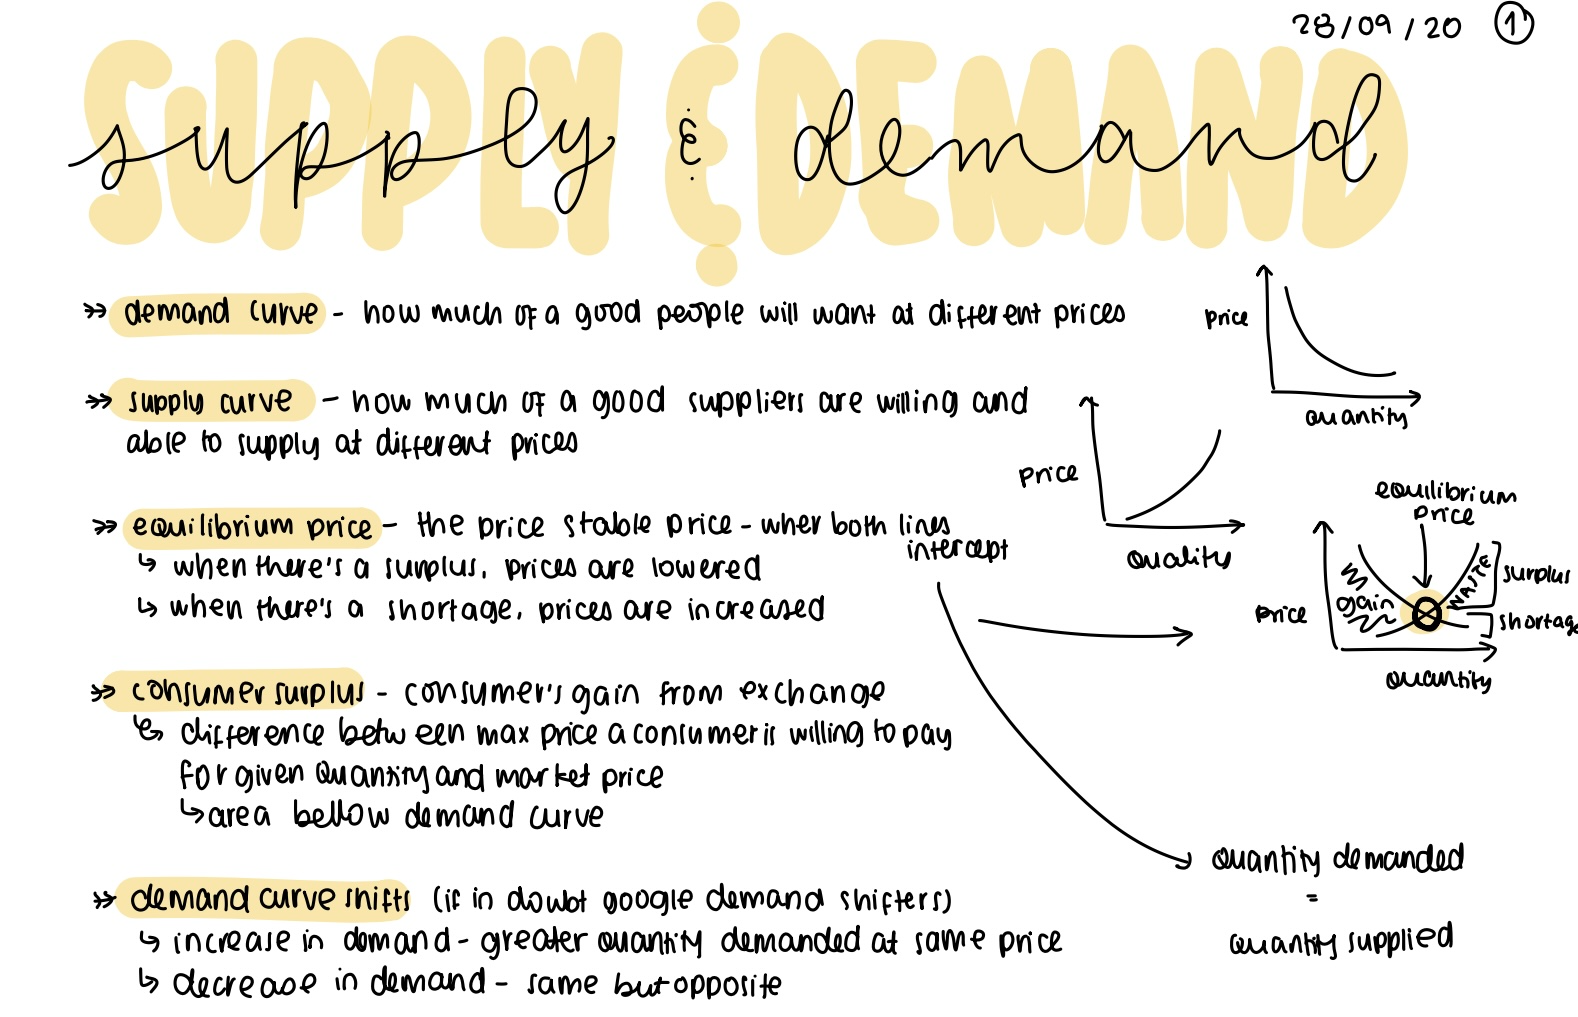 28/09/20 1
SUPPLY & DEMAND
supply & demand
demand curve - how much of a good people will want at different prices
price
quantity
supply curve - how much of a good suppliers are willing and
able to supply at different prices
price
quality
equilibrium price - the price stable price - wher both lines
intercept
when there's a surplus, prices are lowered
when there's a shortage, prices are increased
equilibrium
price
price
gain
WASTE
surplus
shortag
quantity
consumer surplus - consumer's gain from exchange
difference between max price a consumer is willing to pay
for given quantity and market price
area bellow demand curve
quantity demanded
=
quantity supplied
demand curve shifts (if in doubt google demand shifters)
increase in demand - greater quantity demanded at same price
decrease in demand - same but opposite